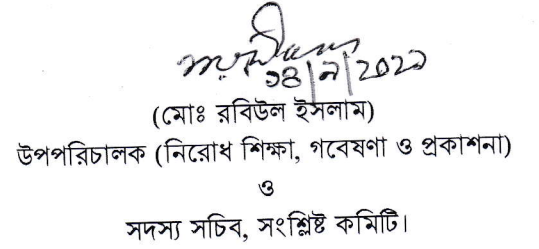 ১৪/৯/২০২১
(মোঃ রবিউল ইসলাম)
উপপরিচালক (নিরোধ শিক্ষা, গবেষণা ও প্রকাশনা)
ও
সদস্য সচিব, সংশ্লিষ্ট কমিটি।